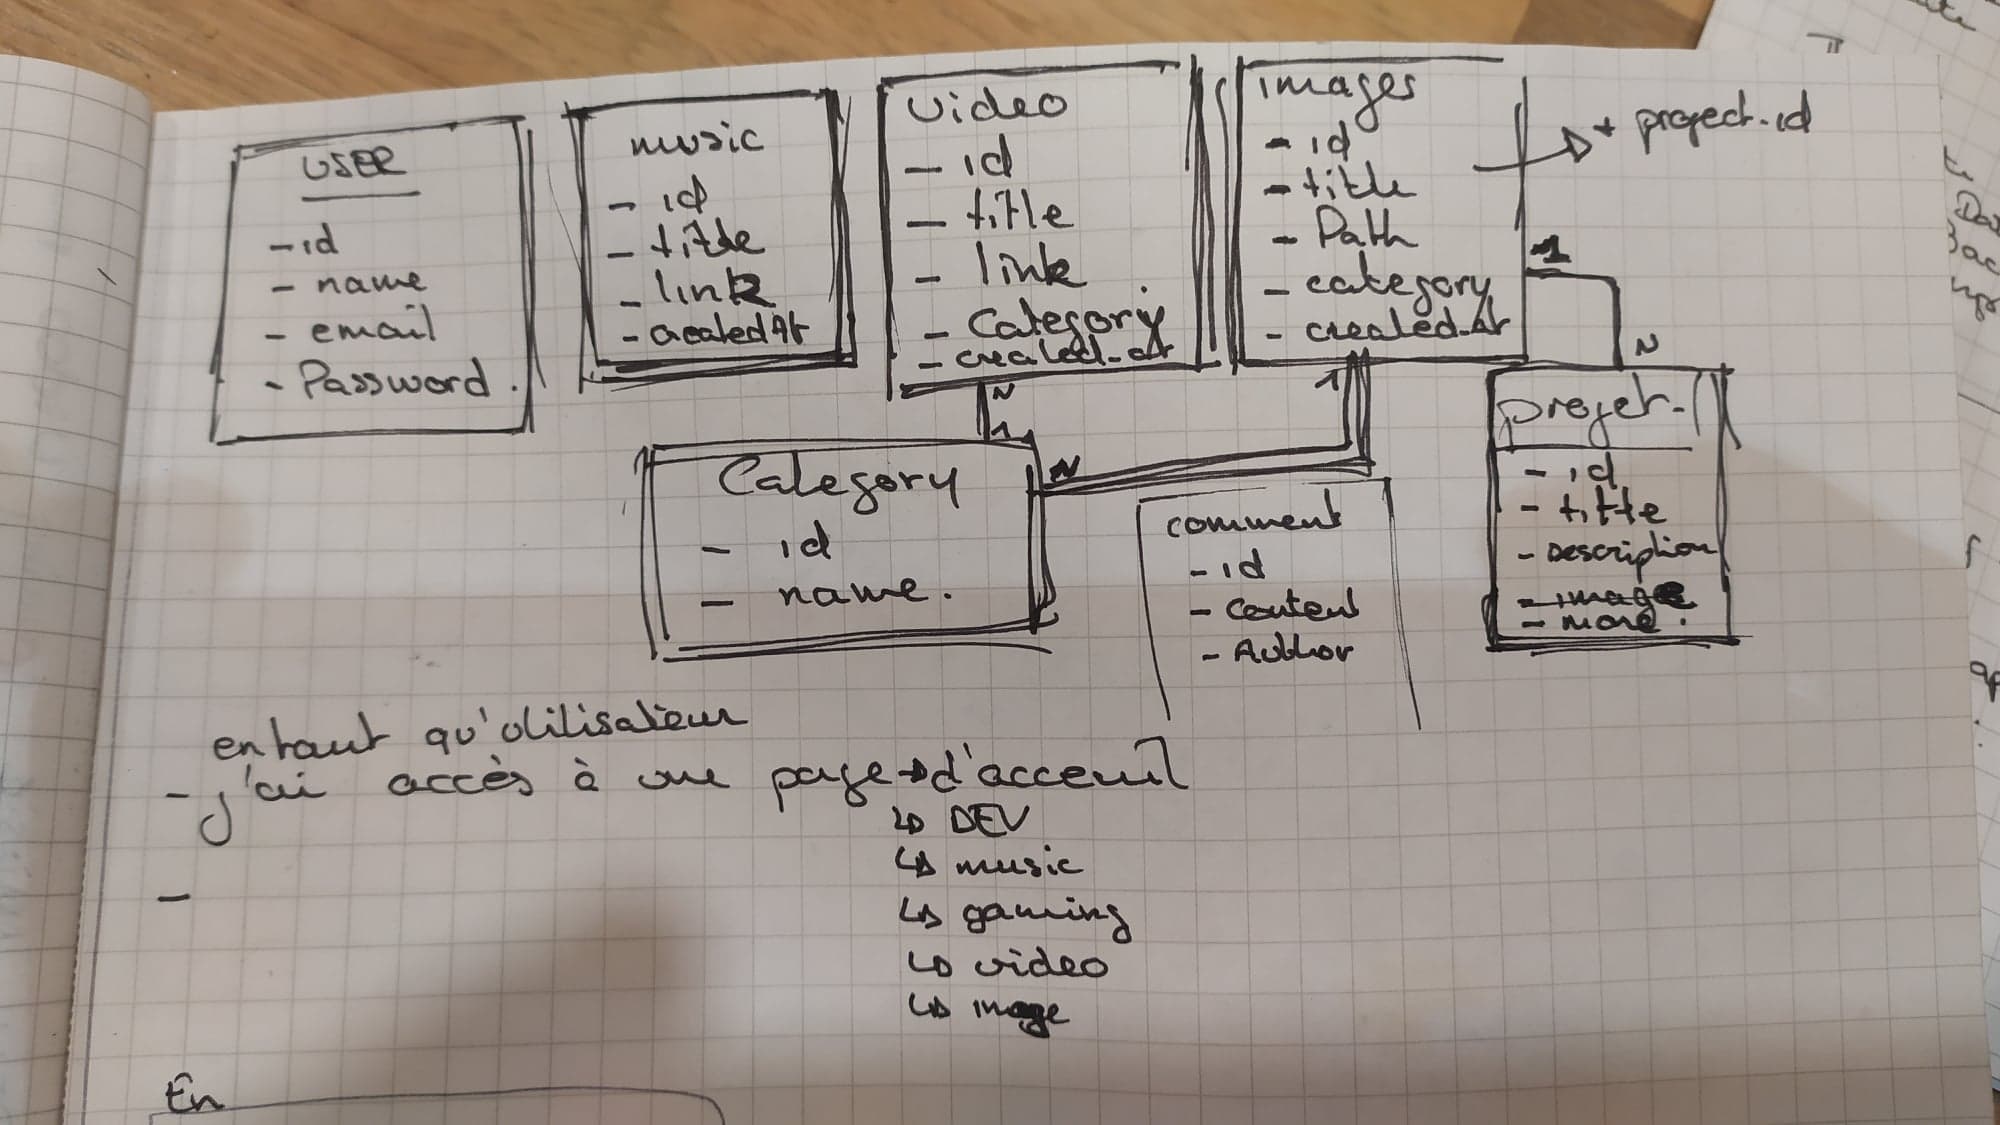 USER
- id
- name
- email
- Password.
music
- id
- title
- link
- createdAt
video
- id
- title
- link
- Category
- created_at
images
- id
- title
- Path
- category
- created_at
+ project_id
1
N
N
1
1
N
Category
- id
- name.
comment
- id
- content
- Author
projet
- id
- title
- Description
- image
- more.
en tant qu'utilisateur
- j'ai accès à une page → d'acceuil
↳ DEV
↳ music
↳ gaming
↳ video
↳ image
-
En